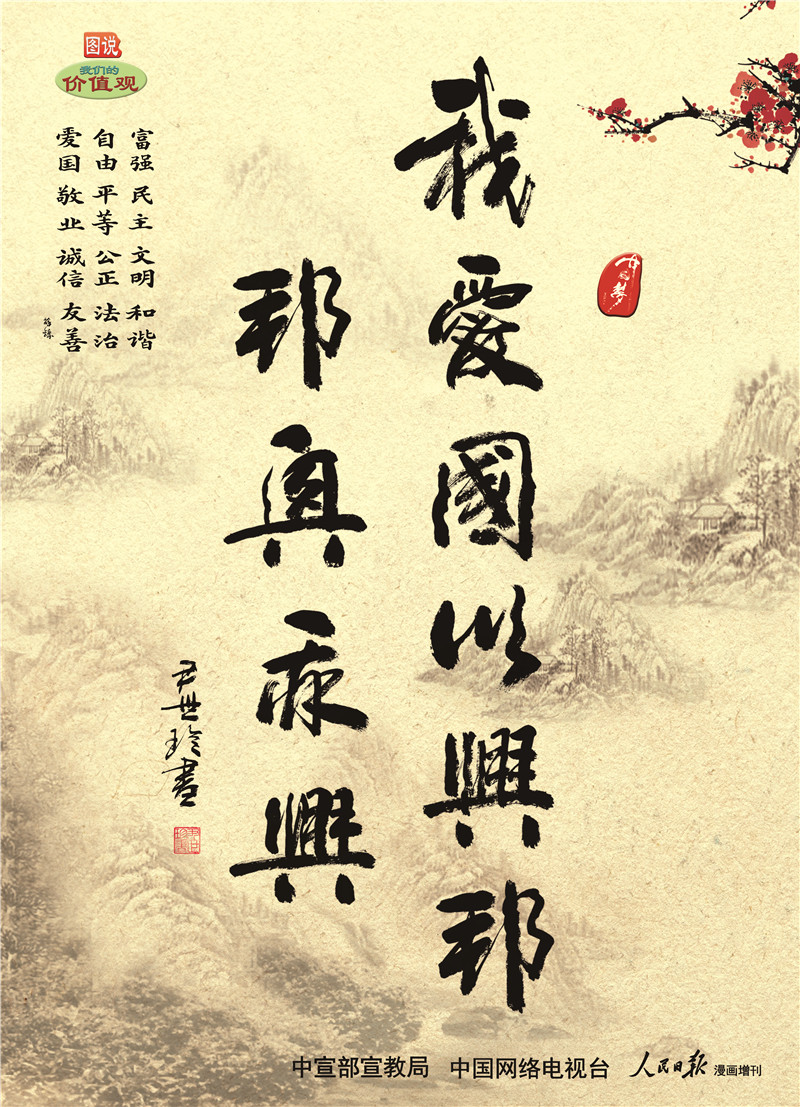 图说
我们的
价值观
富强 民主 文明 和谐
自由 平等 公正 法治
爱国 敬业 诚信 友善
中国梦
我愛國以興邦
邦真興
尹世玲書
中宣部宣教局 中国网络电视台 人民日报 漫画增刊